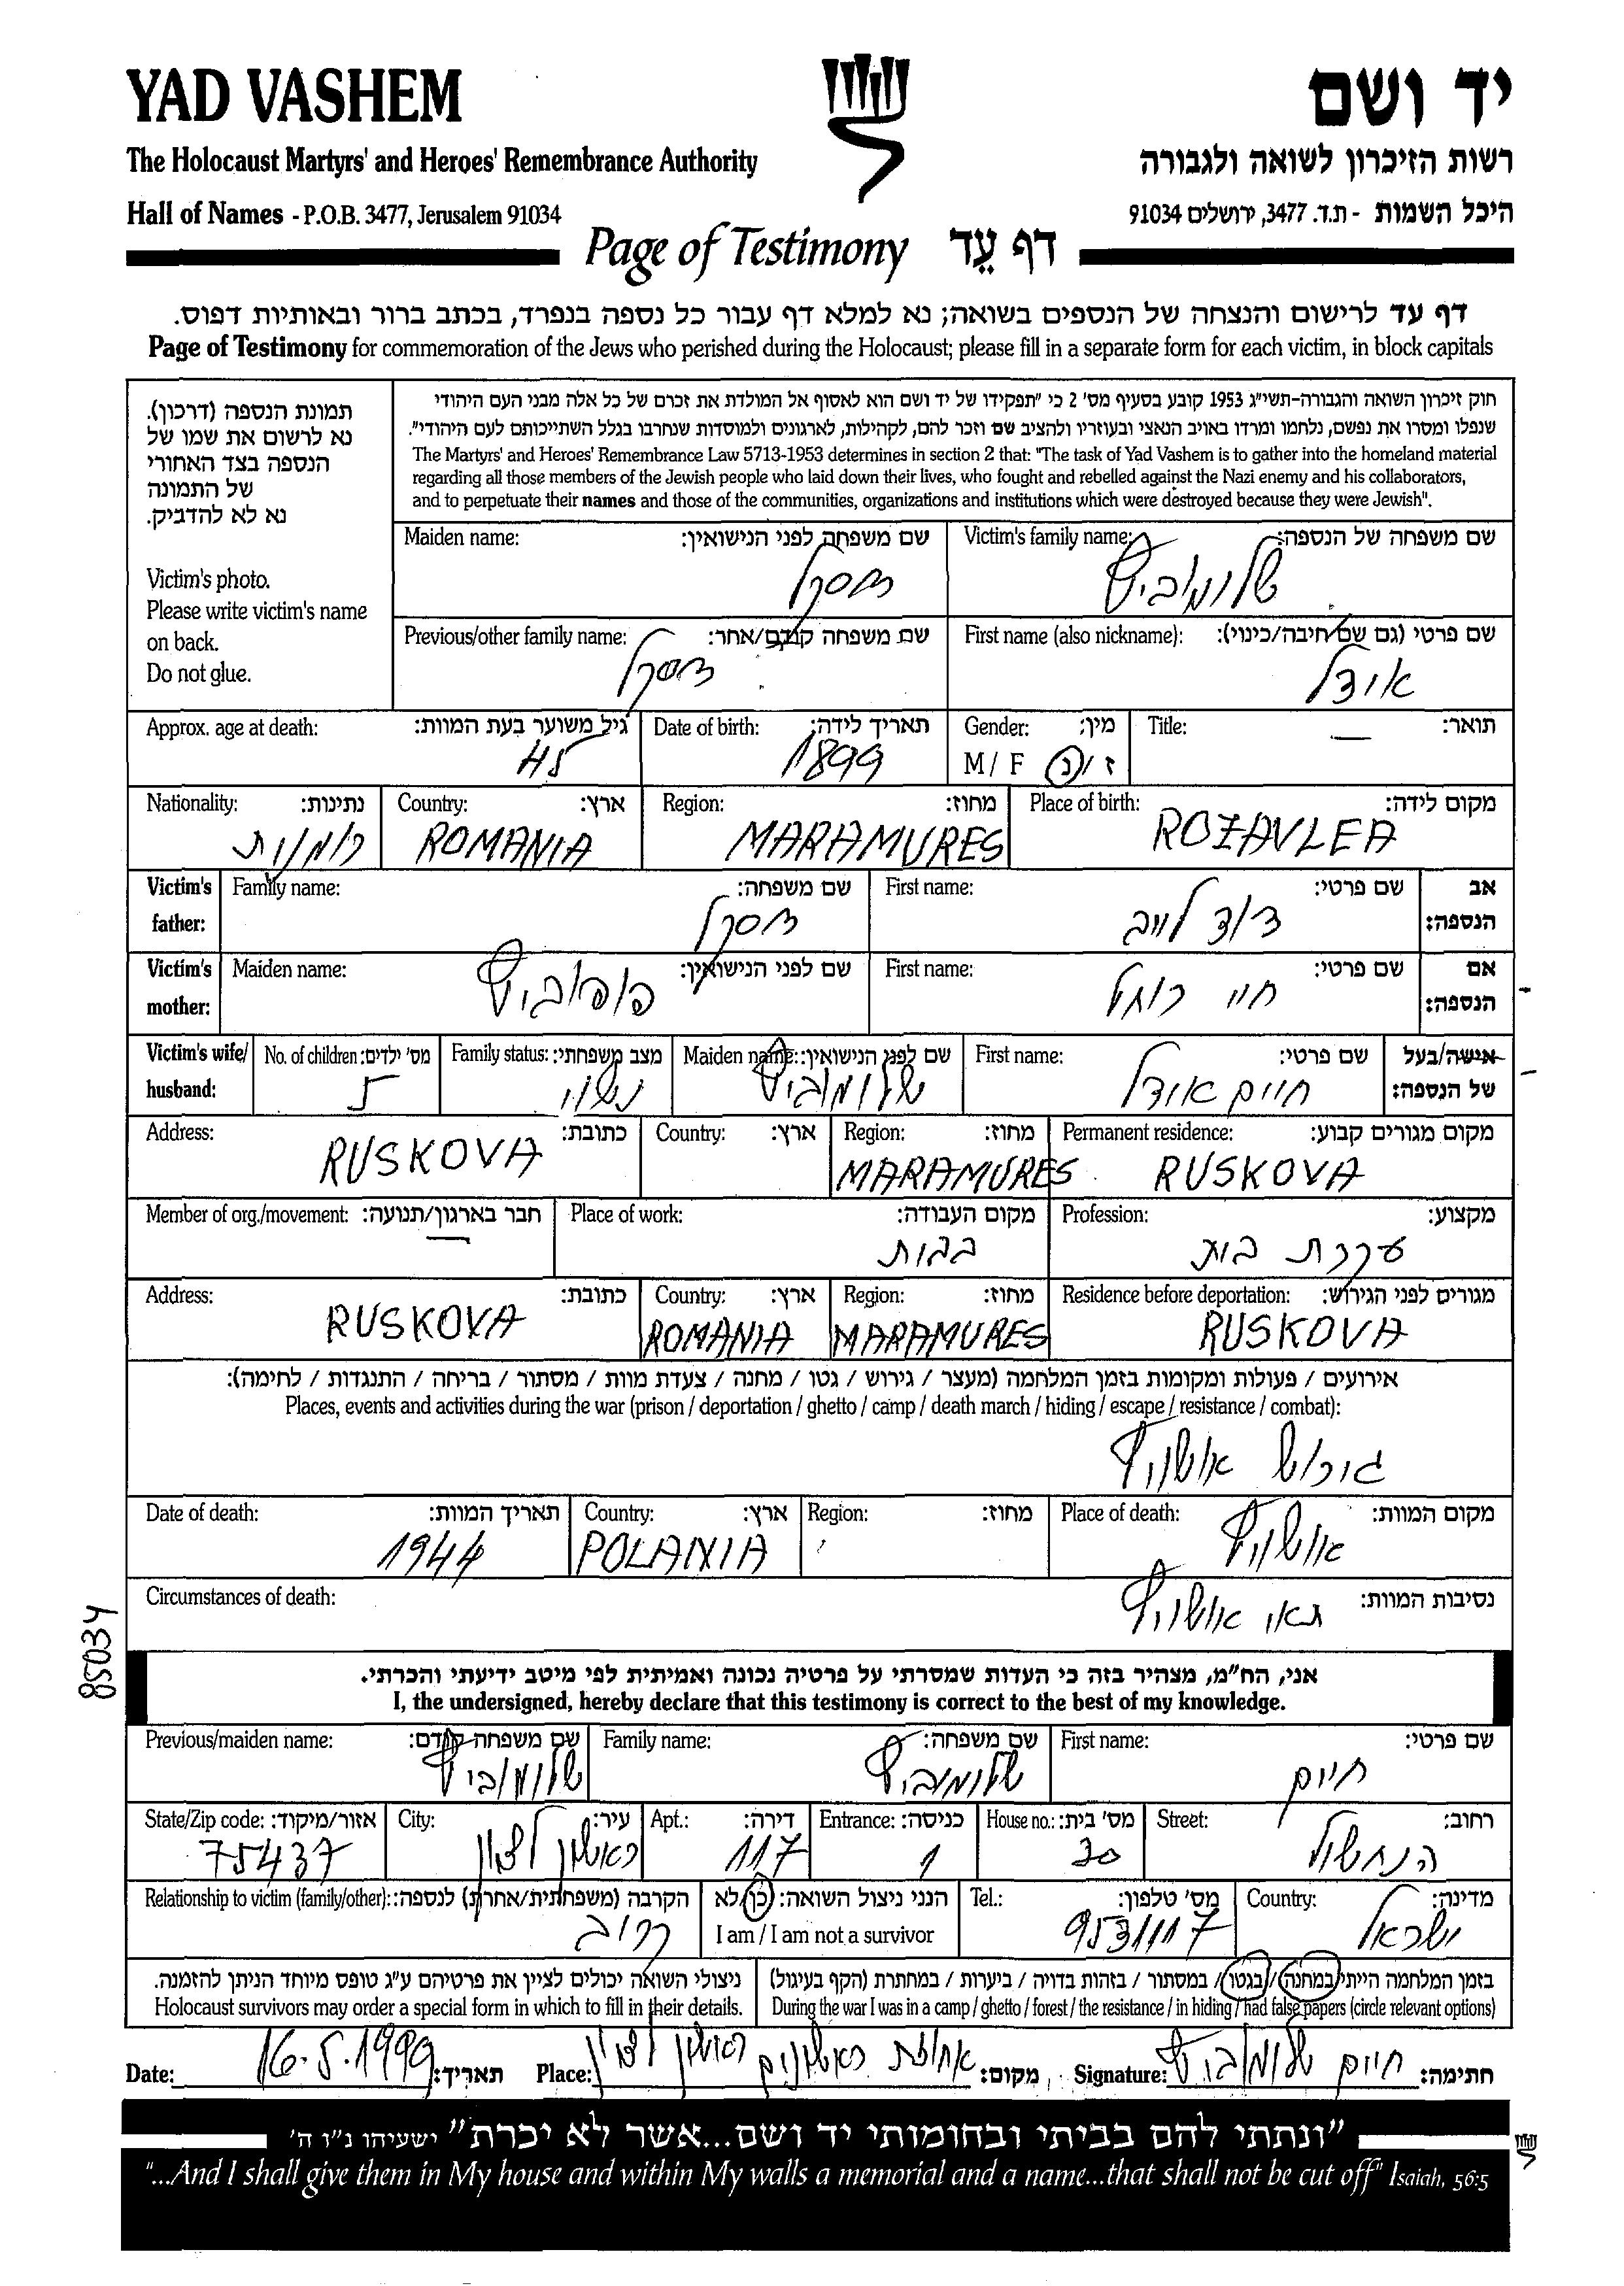 YAD VASHEM
יד ושם
The Holocaust Martyrs' and Heroes' Remembrance Authority
רשות הזיכרון לשואה ולגבורה
Hall of Names - P.O.B. 3477, Jerusalem 91034
היכל השמות - ת.ד. 3477, ירושלים 91034
Page of Testimony דף עֵד
דף עד לרישום והנצחה של הנספים בשואה; נא למלא דף עבור כל נספה בנפרד, בכתב ברור ובאותיות דפוס.
Page of Testimony for commemoration of the Jews who perished during the Holocaust; please fill in a separate form for each victim, in block capitals
תמונת הנספה (דרכון).
נא לרשום את שמו של
הנספה בצד האחורי
של התמונה
נא לא להדביק.
Victim's photo.
Please write victim's name
on back.
Do not glue.
חוק זיכרון השואה והגבורה-תשי"ג 1953 קובע בסעיף מס' 2 כי "תפקידו של יד ושם הוא לאסוף אל המולדת את זכרם של כל אלה מבני העם היהודי
שנפלו ומסרו את נפשם, נלחמו ומרדו באויב הנאצי ובעוזריו ולהציב שם וזכר להם, לקהילות, לארגונים ולמוסדות שנחרבו בגלל השתייכותם לעם היהודי".
The Martyrs' and Heroes' Remembrance Law 5713-1953 determines in section 2 that: "The task of Yad Vashem is to gather into the homeland material
regarding all those members of the Jewish people who laid down their lives, who fought and rebelled against the Nazi enemy and his collaborators,
and to perpetuate their names and those of the communities, organizations and institutions which were destroyed because they were Jewish".
Victim's family name: שם משפחה של הנספה:
שלומוביץ
Maiden name: שם משפחה לפני הנישואין:
First name (also nickname): שם פרטי (גם שם חיבה/כינוי):
אידל
Previous/other family name: שם משפחה קודם/אחר:
Title: תואר: —
Gender: מין:
M / F ז / נ
Date of birth: תאריך לידה:
1899
Approx. age at death: גיל משוער בעת המוות:
45
Place of birth: מקום לידה:
ROZAVLEA
Region: מחוז:
MARAMURES
Country: ארץ:
ROMANIA
Nationality: נתינות:
רומנית
Victim's father: אב הנספה:
First name: שם פרטי:
דוד לייב
Family name: שם משפחה:
Victim's mother: אם הנספה:
First name: שם פרטי:
חיי רוחל
Maiden name: שם לפני הנישואין:
פופוביץ
Victim's wife/ husband: אישה/בעל של הנספה:
First name: שם פרטי:
חיים אידל
Maiden name: שם לפני הנישואין:
שלומוביץ
Family status: מצב משפחתי:
נשוי
No. of children: מס' ילדים:
5
Permanent residence: מקום מגורים קבוע:
RUSKOVA
Region: מחוז:
MARAMURES
Country: ארץ:
Address: כתובת:
RUSKOVA
Profession: מקצוע:
עקרת בית
Place of work: מקום העבודה:
בבית
Member of org./movement: חבר בארגון/תנועה:
—
Residence before deportation: מגורים לפני הגירוש:
RUSKOVA
Region: מחוז:
MARAMURES
Country: ארץ:
ROMANIA
Address: כתובת:
RUSKOVA
אירועים / פעולות ומקומות בזמן המלחמה (מעצר / גירוש / גטו / מחנה / צעדת מוות / מסתור / בריחה / התנגדות / לחימה):
Places, events and activities during the war (prison / deportation / ghetto / camp / death march / hiding / escape / resistance / combat):
גירוש אושויץ
Place of death: מקום המוות:
אושויץ
Region: מחוז:
Country: ארץ:
POLANIA
Date of death: תאריך המוות:
1944
Circumstances of death: נסיבות המוות:
תאי אושויץ
85034
אני, הח"מ, מצהיר בזה כי העדות שמסרתי על פרטיה נכונה ואמיתית לפי מיטב ידיעתי והכרתי.
I, the undersigned, hereby declare that this testimony is correct to the best of my knowledge.
First name: שם פרטי:
חיים
Family name: שם משפחה:
שלומוביץ
Previous/maiden name: שם משפחה קודם:
שלומוביץ
Street: רחוב:
הנחשול
House no.: מס' בית:
30
Entrance: כניסה:
1
Apt.: דירה:
117
City: עיר:
ראשון לציון
State/Zip code: אזור/מיקוד:
75437
Country: מדינה:
ישראל
Tel.: מס' טלפון:
9531117
הנני ניצול השואה: כן/לא
I am / I am not a survivor
Relationship to victim (family/other): הקרבה (משפחתית/אחרת) לנספה:
קרוב
בזמן המלחמה הייתי במחנה/בגטו/ במסתור / בזהות בדויה / ביערות / במחתרת (הקף בעיגול)
During the war I was in a camp / ghetto / forest / the resistance / in hiding / had false papers (circle relevant options)
ניצולי השואה יכולים לציין את פרטיהם ע"ג טופס מיוחד הניתן להזמנה.
Holocaust survivors may order a special form in which to fill in their details.
Signature: חתימה: חיים שלומוביץ
Place: מקום: אחוזת ראשונים ראשון לציון
Date: תאריך: 16.5.1999
"ונתתי להם בביתי ובחומותי יד ושם...אשר לא יכרת" ישעיהו נ"ו ה'
"...And I shall give them in My house and within My walls a memorial and a name...that shall not be cut off" Isaiah, 56:5